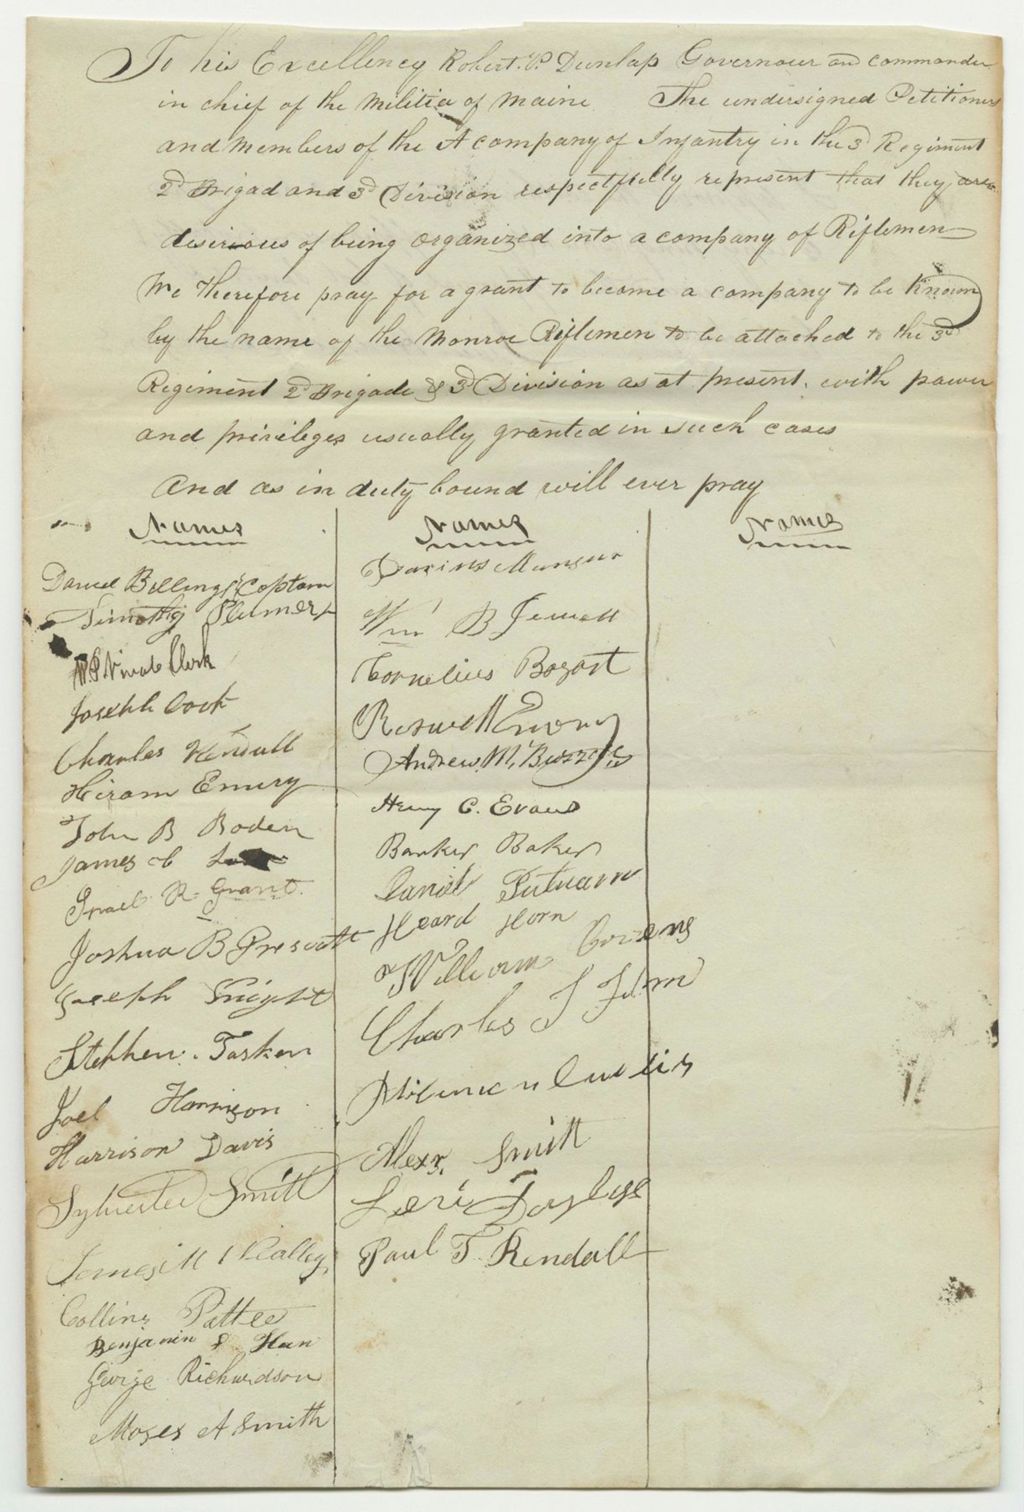 To his Excellency Robert. P. Dunlap Governour and commander
in chief of the militia of maine The undersigned Petitioners
and members of the A company of Infantry in the 3d Regiment
2d Brigad and 3d Division respectfully represent that they are
desirious of being organized into a company of Riflemen
We therefore pray for a grant to become a company to be known
by the name of the Monroe Riflemen to be attached to the 3d
Regiment 2d Brigade & 3d Division as at present. with power
and privileges usually granted in such cases
And as in duty bound will ever pray
Names
Daniel Billings Captain
Timothy Plumer
Clerk
Joseph Cook
Charles Kendall
Hiram Emery
John B Boden
James C
Israel R. Grant.
Joshua B Prescott
Joseph Knight
Stephen. Tasker
Joel Harrison
Harrison Davis
Sylvester Smith
James M
Collins Pattee
Benjamin
George Richardson
Moses A Smith
Names
Darius Mansur
Wm B Jewell
Cornelius Bogart
Roswell Emery
Andrew. M.
Henry C. Evans
Barker Baker
Daniel Putnam
Heard Horn
William
Charles
Curtis
Alexr. Smith
Levi
Paul T. Kendall
Names